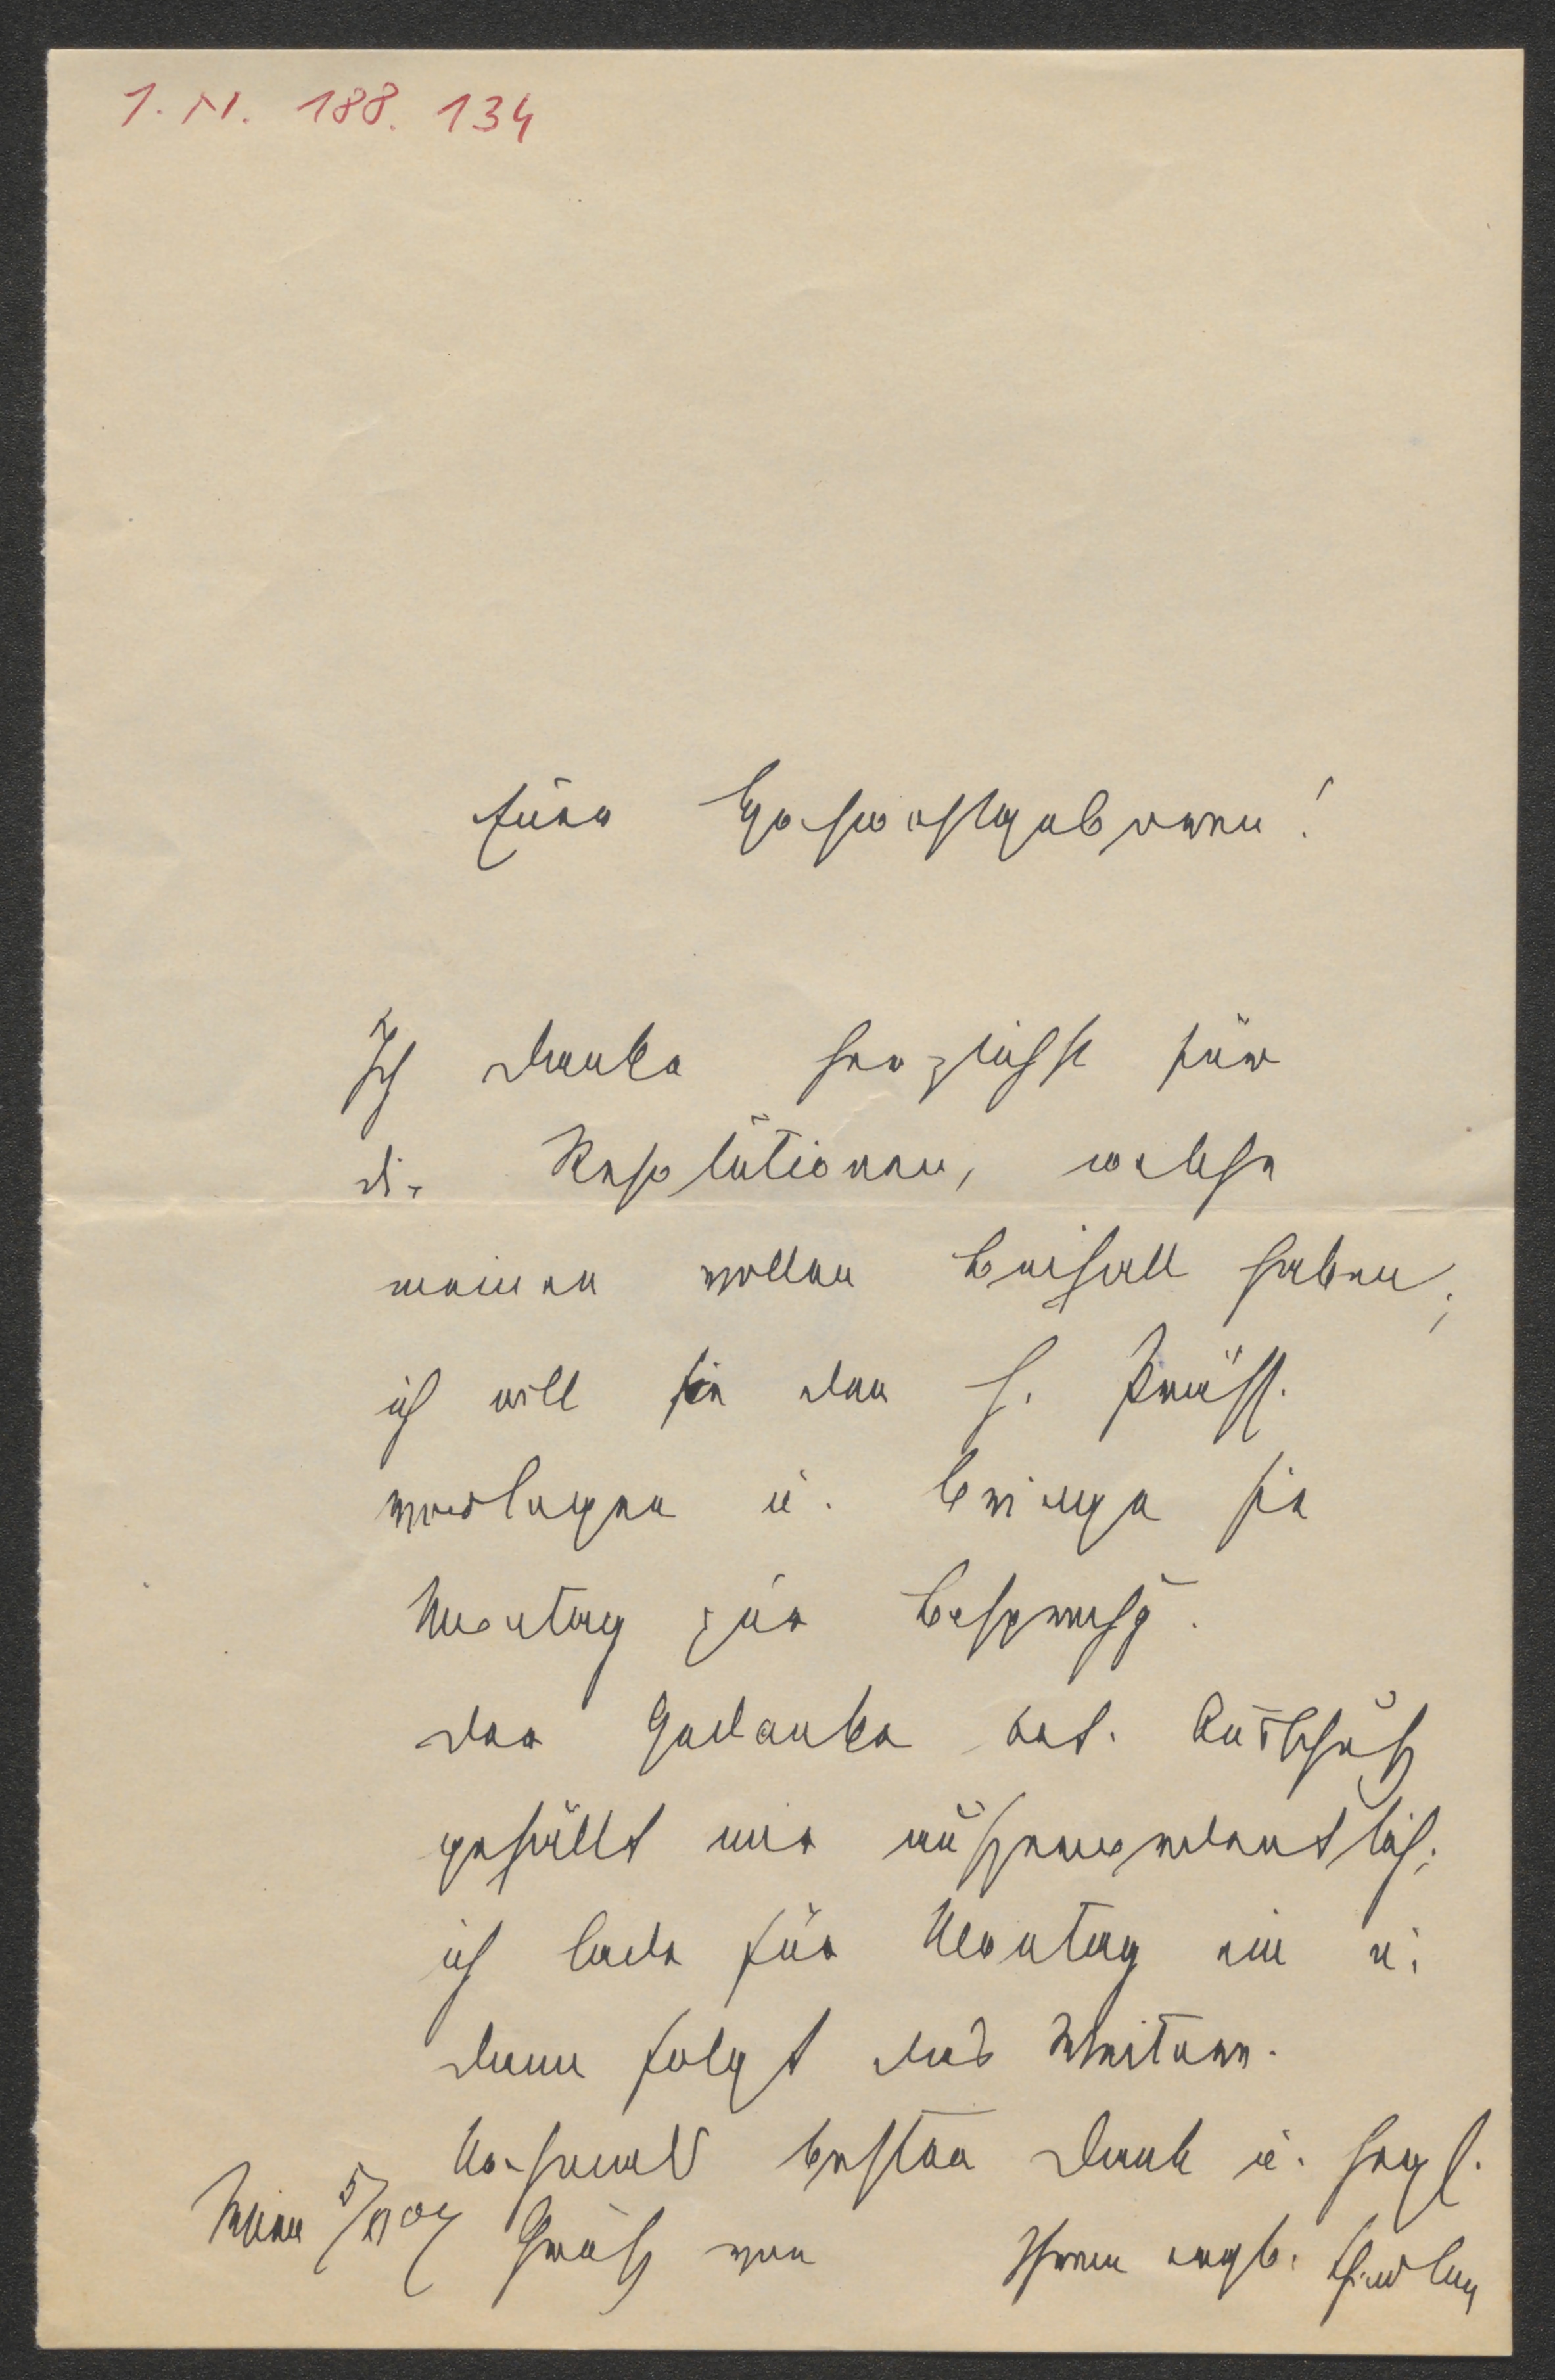 I. N. 188.134
Euer Hochwohlgeboren!
Ich danke herzlichst für
die Resolutionen, welche
meinen vollen Beifall haben;
ich will sie dem H. Präs.
vorlegen u. bringe sie
Montag zur Besprechg.
Der Gedanke bet. Ausschuß
gefällt mir außerordentlich;
ich lade für Montag ein u.
dann folgt das Weitere.
Nochmals besten Dank u. herzl.
Wien 5/XI 04 Gruß von Ihrem ergb.